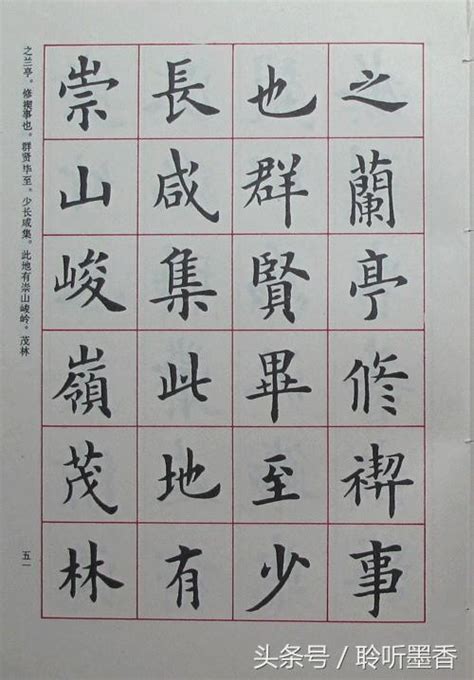 之蘭亭修禊事
也群賢畢至少
長咸集此地有
崇山峻嶺茂林
之兰亭。修禊事也。群贤毕至、少长咸集。此地有崇山峻岭。茂林
五一
头条号／聆听墨香